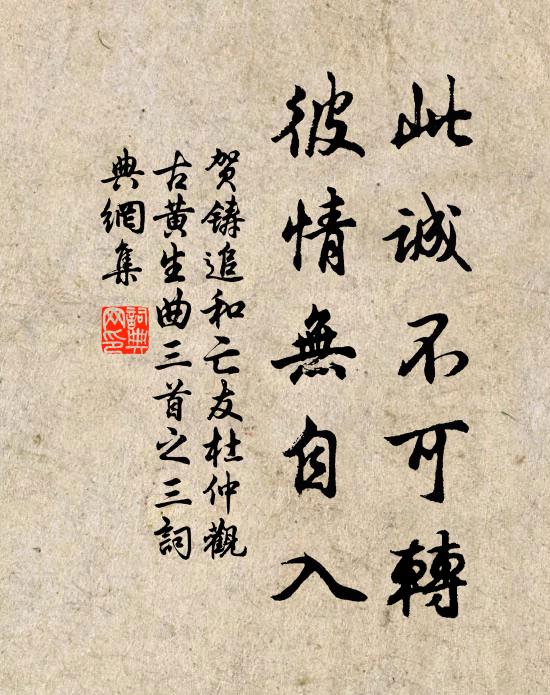 此誠不可轉
彼情無自入
贺鑄追和亡友杜仲觀
古黃生曲三首之三詞
典網集
詞典
网印